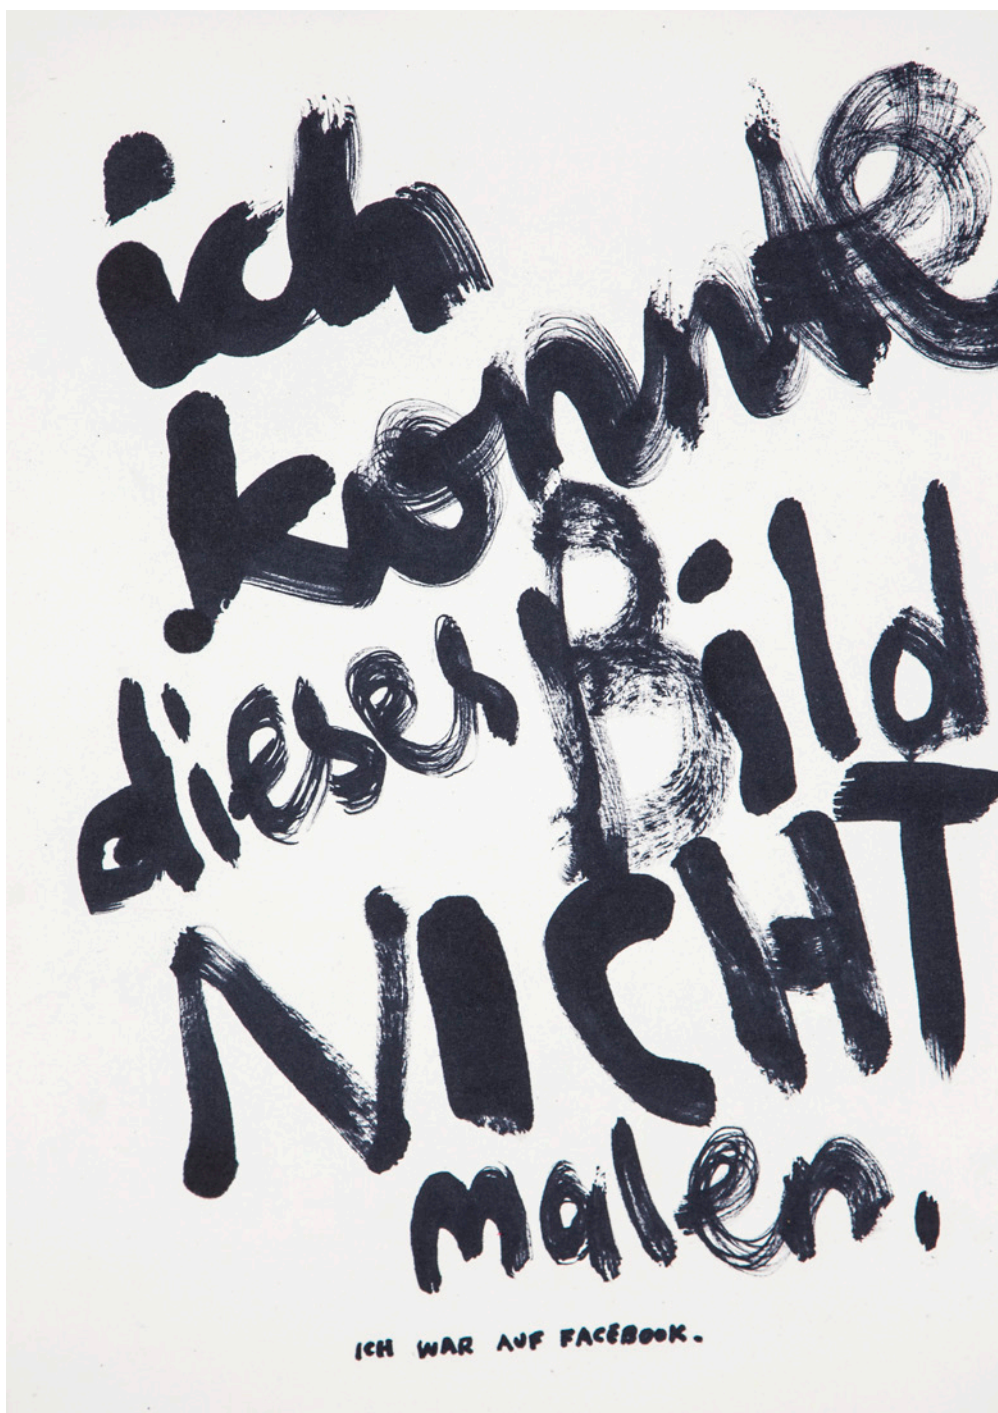 ich
konnte
dieses Bild
NICHT
malen.
ICH WAR AUF FACEBOOK.